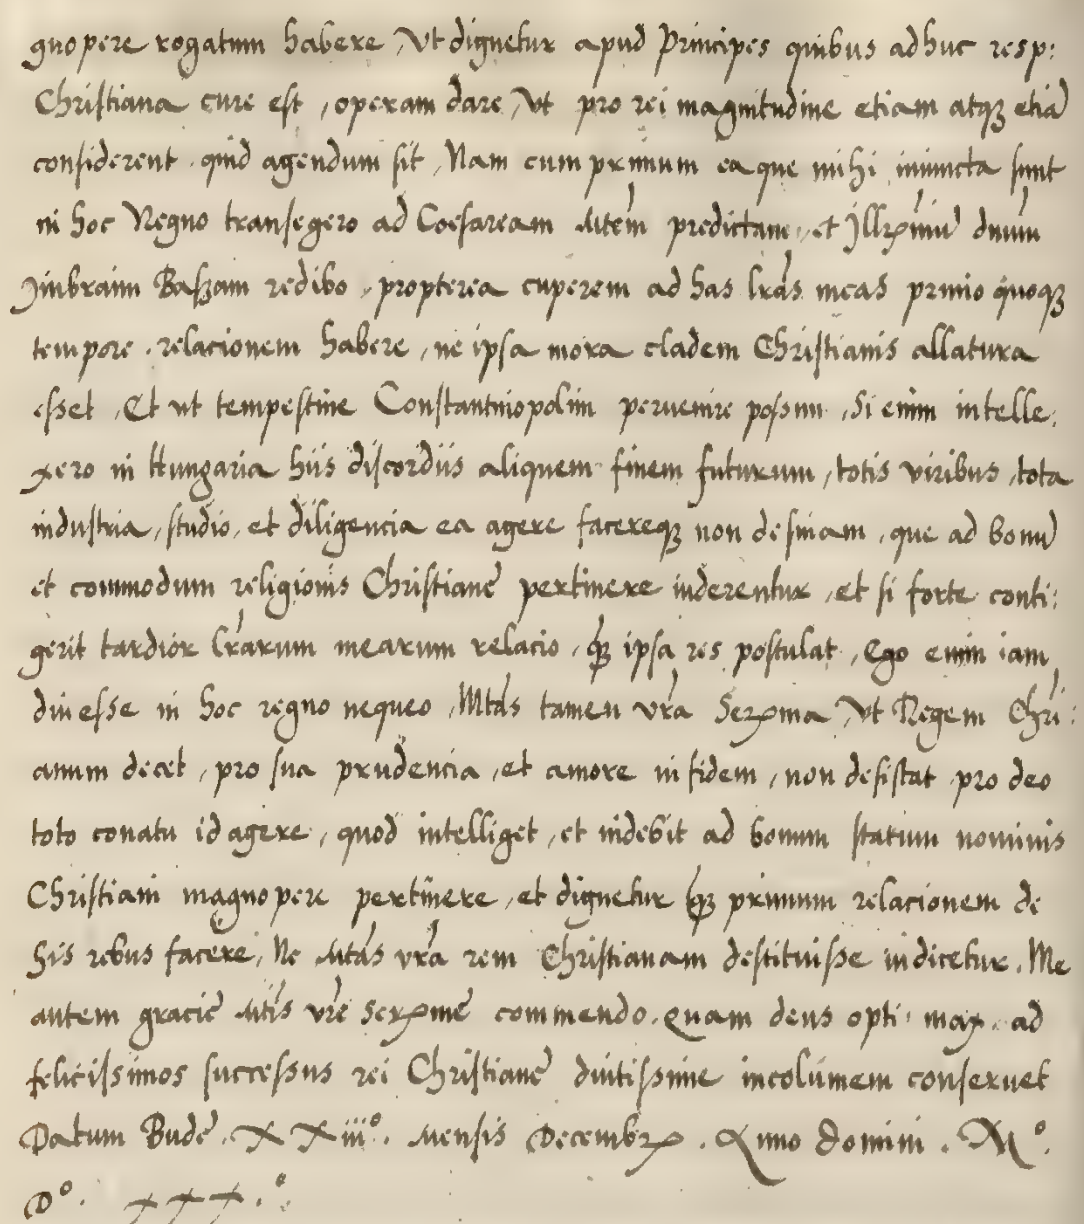 gnopere rogatum habere, Ut dignetur apud Principes quibus adhuc resp:
Christiana cure est, operam dare, Ut pro rei magnitudine etiam atqz etiã
considerent quid agendum sit, Nam cum primum ea que mihi iniuncta sunt
in hoc Regno transegero ad Coesaream Mtem predictam, et Jllrmũ dnum
Jmbraim Baszam redibo, propterea cuperem ad has lras meas primo quoqz
tempore. relacionem habere, ne ipsa mora cladem Christianis allatura
esset, Et ut tempestiue Constantinopolim peruenire possim, Si enim intelle:
xero in Hungaria hiis discordiis aliquem finem futurum, totis viribus, tota
industria, studio, et diligencia ea agere facereqz non desinam, que ad bonũ
et commodum religionis Christianę pertinere uiderentur, et si forte conti:
gerit tardior lrarum mearum relacio, qz ipsa res postulat, Ego enim iam
diu esse in hoc regno nequeo, Mtas tamen vra Serma, Ut Regem Chri:
anum decet, pro sua prudencia, et amore in fidem, non desistat pro deo
toto conatu id agere, quod intelliget, et uidebit ad bonum statum nominis
Christiani magnopere pertinere, et dignetur qz primum relacionem de
his rebus facere, Ne Mtas vra rem Christianam destituisse iudicetur. Me
autem gracię Mtis vrę Sermę commendo. Quam deus opti: max. ad
felicissimos successus rei Christianę diutissime incolumem conseruet
Datum Budę. XXiii°. Mensis Decembr. Anno Domini. M°.
D°. XXX.°